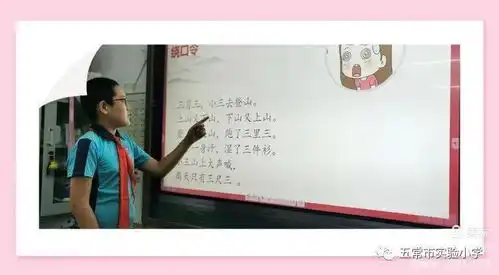 绕口令
三月三，小三去登山。
上山又下山，下山又上山。
山，跑了三里三。
一身汗，湿了三件衫。
小三山上大声喊，
离天只有三尺三。
五常市实验小学